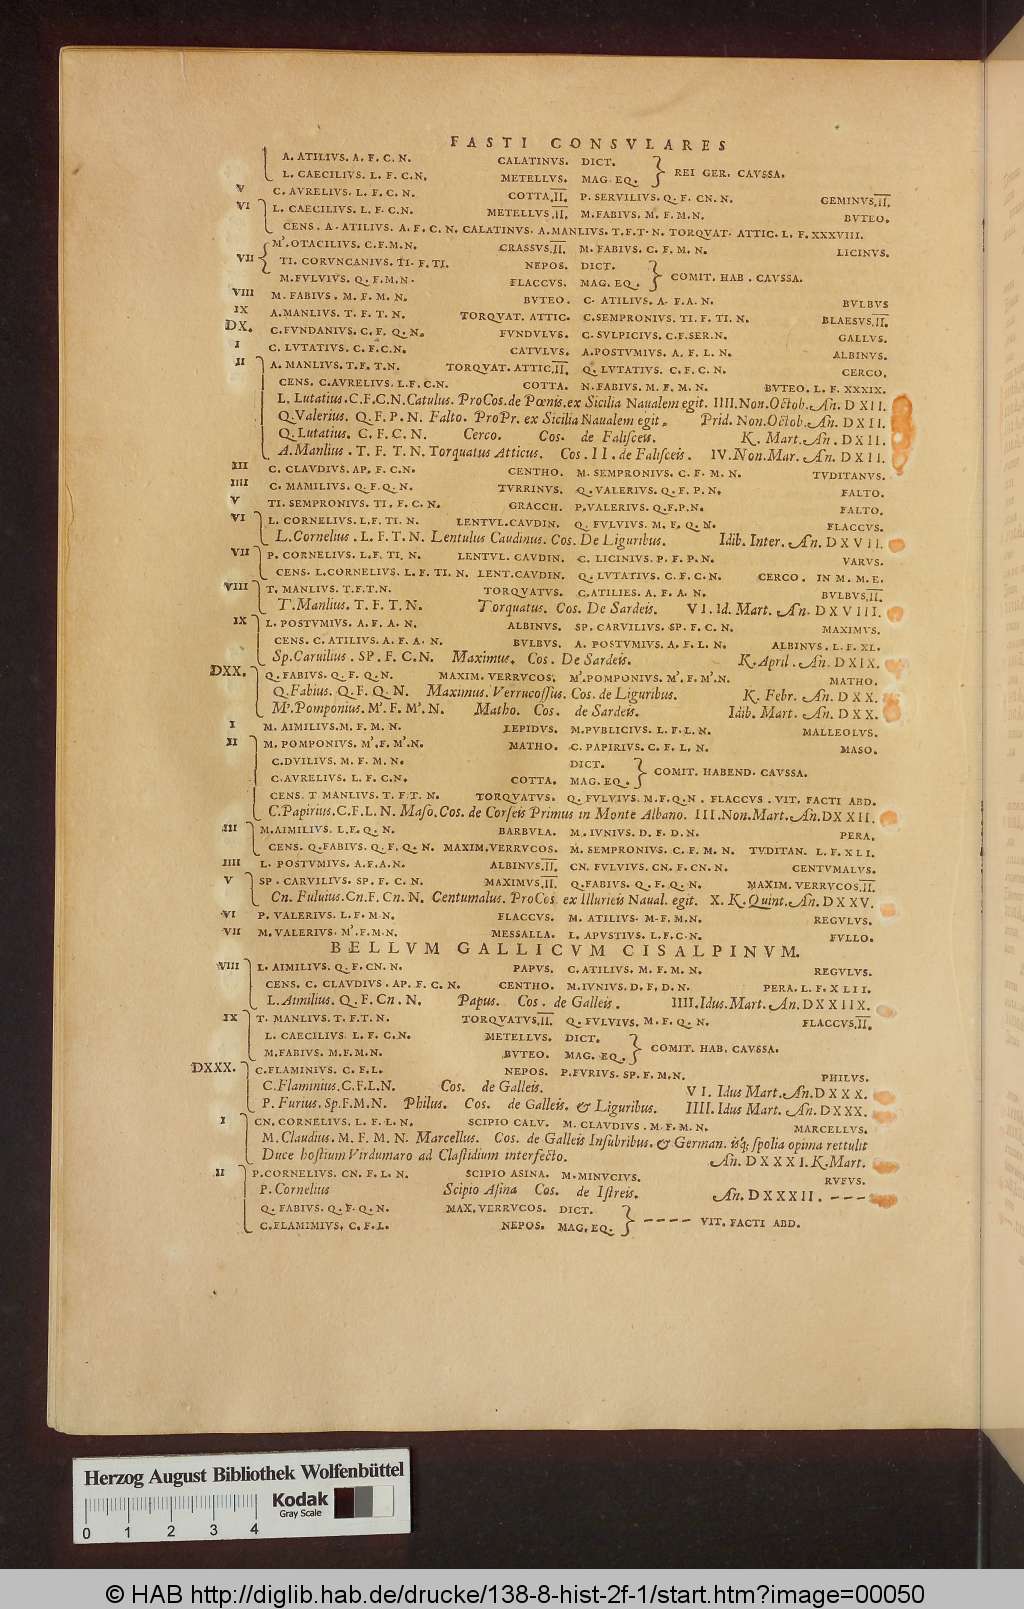 FASTI CONSVLARES
A. ATILIVS. A. F. C. N. CALATINVS. DICT. REI GER. CAVSSA.
L. CAECILIVS. L. F. C.N. METELLVS. MAG. EQ.
V C. AVRELIVS. L. F. C. N. COTTA.II. P. SERVILIVS. Q. F. CN. N. GEMINVS.II.
VI L. CAECILIVS. L. F. C.N. METELLVS.II. M.FABIVS. M. F. M.N. BVTEO.
CENS. A. ATILIVS. A. F. C. N. CALATINVS. A.MANLIVS. T.F.T.N. TORQVAT. ATTIC. L. F. XXXVIII.
VII M'.OTACILIVS. C.F.M.N. CRASSVS.II. M. FABIVS. C. F. M. N. LICINVS.
TI. CORVNCANIVS. TI. F. TI. NEPOS. DICT. COMIT. HAB. CAVSSA.
M.FVLVIVS. Q. F.M.N. FLACCVS. MAG. EQ.
VIII M. FABIVS. M. F. M. N. BVTEO. C. ATILIVS. A. F.A. N. BVLBVS
IX A.MANLIVS. T. F. T. N. TORQVAT. ATTIC. C.SEMPRONIVS. TI. F. TI. N. BLAESVS.II.
DX. C.FVNDANIVS. C. F. Q. N. FVNDVLVS. C. SVLPICIVS. C.F.SER.N. GALLVS.
I C. LVTATIVS. C. F.C.N. CATVLVS. A.POSTVMIVS. A. F. L. N. ALBINVS.
II A. MANLIVS. T.F. T.N. TORQVAT. ATTIC.II. Q. LVTATIVS. C. F. C. N. CERCO.
CENS. C.AVRELIVS. L.F.C.N. COTTA. N.FABIVS. M. F. M. N. BVTEO. L. F. XXXIX.
L. Lutatius.C.F.C.N.Catulus. ProCos.de Pœnis.ex Sicilia Naualem egit. IIII.Non.Octob.An. DXII.
Q.Valerius. Q. F. P. N. Falto. ProPr. ex Sicilia Naualem egit. Prid. Non.Octob.An. DXII.
Q.Lutatius. C. F. C. N. Cerco. Cos. de Falisceis. K. Mart.An. DXII.
A.Manlius. T. F. T. N. Torquatus Atticus. Cos. II. de Falisceis. IV.Non.Mar. An. DXII.
III C. CLAVDIVS. AP. F. C.N. CENTHO. M. SEMPRONIVS. C. F. M. N. TVDITANVS.
IIII C. MAMILIVS. Q. F. Q. N. TVRRINVS. Q. VALERIVS. Q. F. P. N. FALTO.
V TI. SEMPRONIVS. TI. F. C. N. GRACCH. P.VALERIVS. Q.F.P.N. FALTO.
VI L. CORNELIVS. L.F. TI. N. LENTVL.CAVDIN. Q. FVLVIVS. M. F. Q. N. FLACCVS.
L.Cornelius. L. F. T. N. Lentulus Caudinus. Cos. De Liguribus. Idib. Inter. An. DXVII.
VII P. CORNELIVS. L.F. TI. N. LENTVL. CAVDIN. C. LICINIVS. P. F. P. N. VARVS.
CENS. L.CORNELIVS. L. F. TI. N. LENT.CAVDIN. Q. LVTATIVS. C. F. C. N. CERCO. IN M. M. E.
VIII T. MANLIVS. T.F.T.N. TORQVATVS. C.ATILIES. A. F. A. N. BVLBVS.II.
T.Manlius. T. F. T. N. Torquatus. Cos. De Sardeis. VI. Id. Mart. An. DXVIII.
IX L. POSTVMIVS. A. F. A. N. ALBINVS. SP. CARVILIVS. SP. F. C. N. MAXIMVS.
CENS. C. ATILIVS. A. F. A. N. BVLBVS. A. POSTVMIVS. A. F. L. N. ALBINVS. L. F. XL.
Sp.Caruilius. SP. F. C.N. Maximus. Cos. De Sardeis. K.April. An. DXIX.
DXX. Q.FABIVS. Q. F. Q. N. MAXIM. VERRVCOS. M'.POMPONIVS. M'. F. M'.N. MATHO.
Q.Fabius. Q. F. Q. N. Maximus. Verrucossus. Cos. de Liguribus. K. Febr. An. DXX.
M'.Pomponius. M'. F. M'. N. Matho. Cos. de Sardeis. Idib. Mart. An. DXX.
I M. AIMILIVS.M. F. M. N. LEPIDVS. M.PVBLICIVS. L. F. L. N. MALLEOLVS.
II M. POMPONIVS. M'.F. M'.N. MATHO. C. PAPIRIVS. C. F. L. N. MASO.
C.DVILIVS. M. F. M. N. DICT. COMIT. HABEND. CAVSSA.
C.AVRELIVS. L. F. C.N. COTTA. MAG. EQ.
CENS. T MANLIVS. T. F. T. N. TORQVATVS. Q. FVLVIVS. M.F.Q.N. FLACCVS. VIT. FACTI ABD.
C.Papirius.C.F.L.N. Maso. Cos. de Corseis Primus in Monte Albano. III.Non.Mart. An. DXXII.
III M.AIMILIVS. L.F. Q. N. BARBVLA. M. IVNIVS. D. F. D. N. PERA.
CENS. Q.FABIVS. Q. F. Q. N. MAXIM.VERRVCOS. M. SEMPRONIVS. C. F. M. N. TVDITAN. L. F. XLI.
IIII L. POSTVMIVS. A.F.A.N. ALBINVS.II. CN. FVLVIVS. CN. F. CN. N. CENTVMALVS.
V SP. CARVILIVS. SP. F. C. N. MAXIMVS.II. Q.FABIVS. Q. F. Q. N. MAXIM. VERRVCOS.II.
Cn. Fuluius.Cn.F. Cn. N. Centumalus. ProCos. ex Illurieis Naual. egit. X. K. Quint. An. DXXV.
VI P. VALERIVS. L. F. M.N. FLACCVS. M. ATILIVS. M. F. M.N. REGVLVS.
VII M. VALERIVS. M'.F.M.N. MESSALLA. L. APVSTIVS. L. F. C. N. FVLLO.
BELLVM GALLICVM CISALPINVM.
VIII L. AIMILIVS. Q. F. CN. N. PAPVS. C. ATILIVS. M. F. M. N. REGVLVS.
CENS. C. CLAVDIVS. AP. F. C. N. CENTHO. M.IVNIVS. D. F. D. N. PERA. L. F. XLII.
L.Aimilius. Q. F. Cn. N. Papus. Cos. de Galleis. IIII.Idus.Mart. An. DXXIIX.
IX T. MANLIVS. T. F.T. N. TORQVATVS.II. Q. FVLVIVS. M. F. Q. N. FLACCVS.II.
L. CAECILIVS. L. F. C.N. METELLVS. DICT. COMIT. HAB. CAVSSA.
M.FABIVS. M.F.M.N. BVTEO. MAG. EQ.
DXXX. C.FLAMINIVS. C. F.L. NEPOS. P.FVRIVS. SP. F. M.N. PHILVS.
C.Flaminius.C.F.L.N. Cos. de Galleis. VI. Idus Mart. An. DXXX.
P. Furius. Sp.F.M.N. Philus. Cos. de Galleis. & Liguribus. IIII. Idus Mart. An. DXXX.
I CN. CORNELIVS. L. F. L. N. SCIPIO CALV. M. CLAVDIVS. M. F. M. N. MARCELLVS.
M.Claudius. M. F. M. N. Marcellus. Cos. de Galleis Insubribus. & German. isq; spolia opima rettulit
Duce hostium Virdumaro ad Clastidium interfecto. An. DXXXI. K.Mart.
II P.CORNELIVS. CN. F. L. N. SCIPIO ASINA. M.MINVCIVS. RVFVS.
P. Cornelius Scipio Asina Cos. de Istreis. An. DXXXII. ----
Q. FABIVS. Q. F. Q. N. MAX. VERRVCOS. DICT. ---- VIT. FACTI ABD.
C.FLAMIMIVS. C. F.L. NEPOS. MAG. EQ.
Herzog August Bibliothek Wolfenbüttel
Kodak
Gray Scale
0 1 2 3 4
© HAB http://diglib.hab.de/drucke/138-8-hist-2f-1/start.htm?image=00050